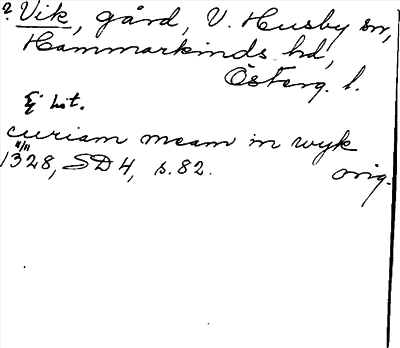 ? Vik, gård, V. Husby sn,
Hammarkinds hd,
Österg. l.
Ej lit.
curiam meam in wyk
11/11
1328, SD 4, s. 82. orig.